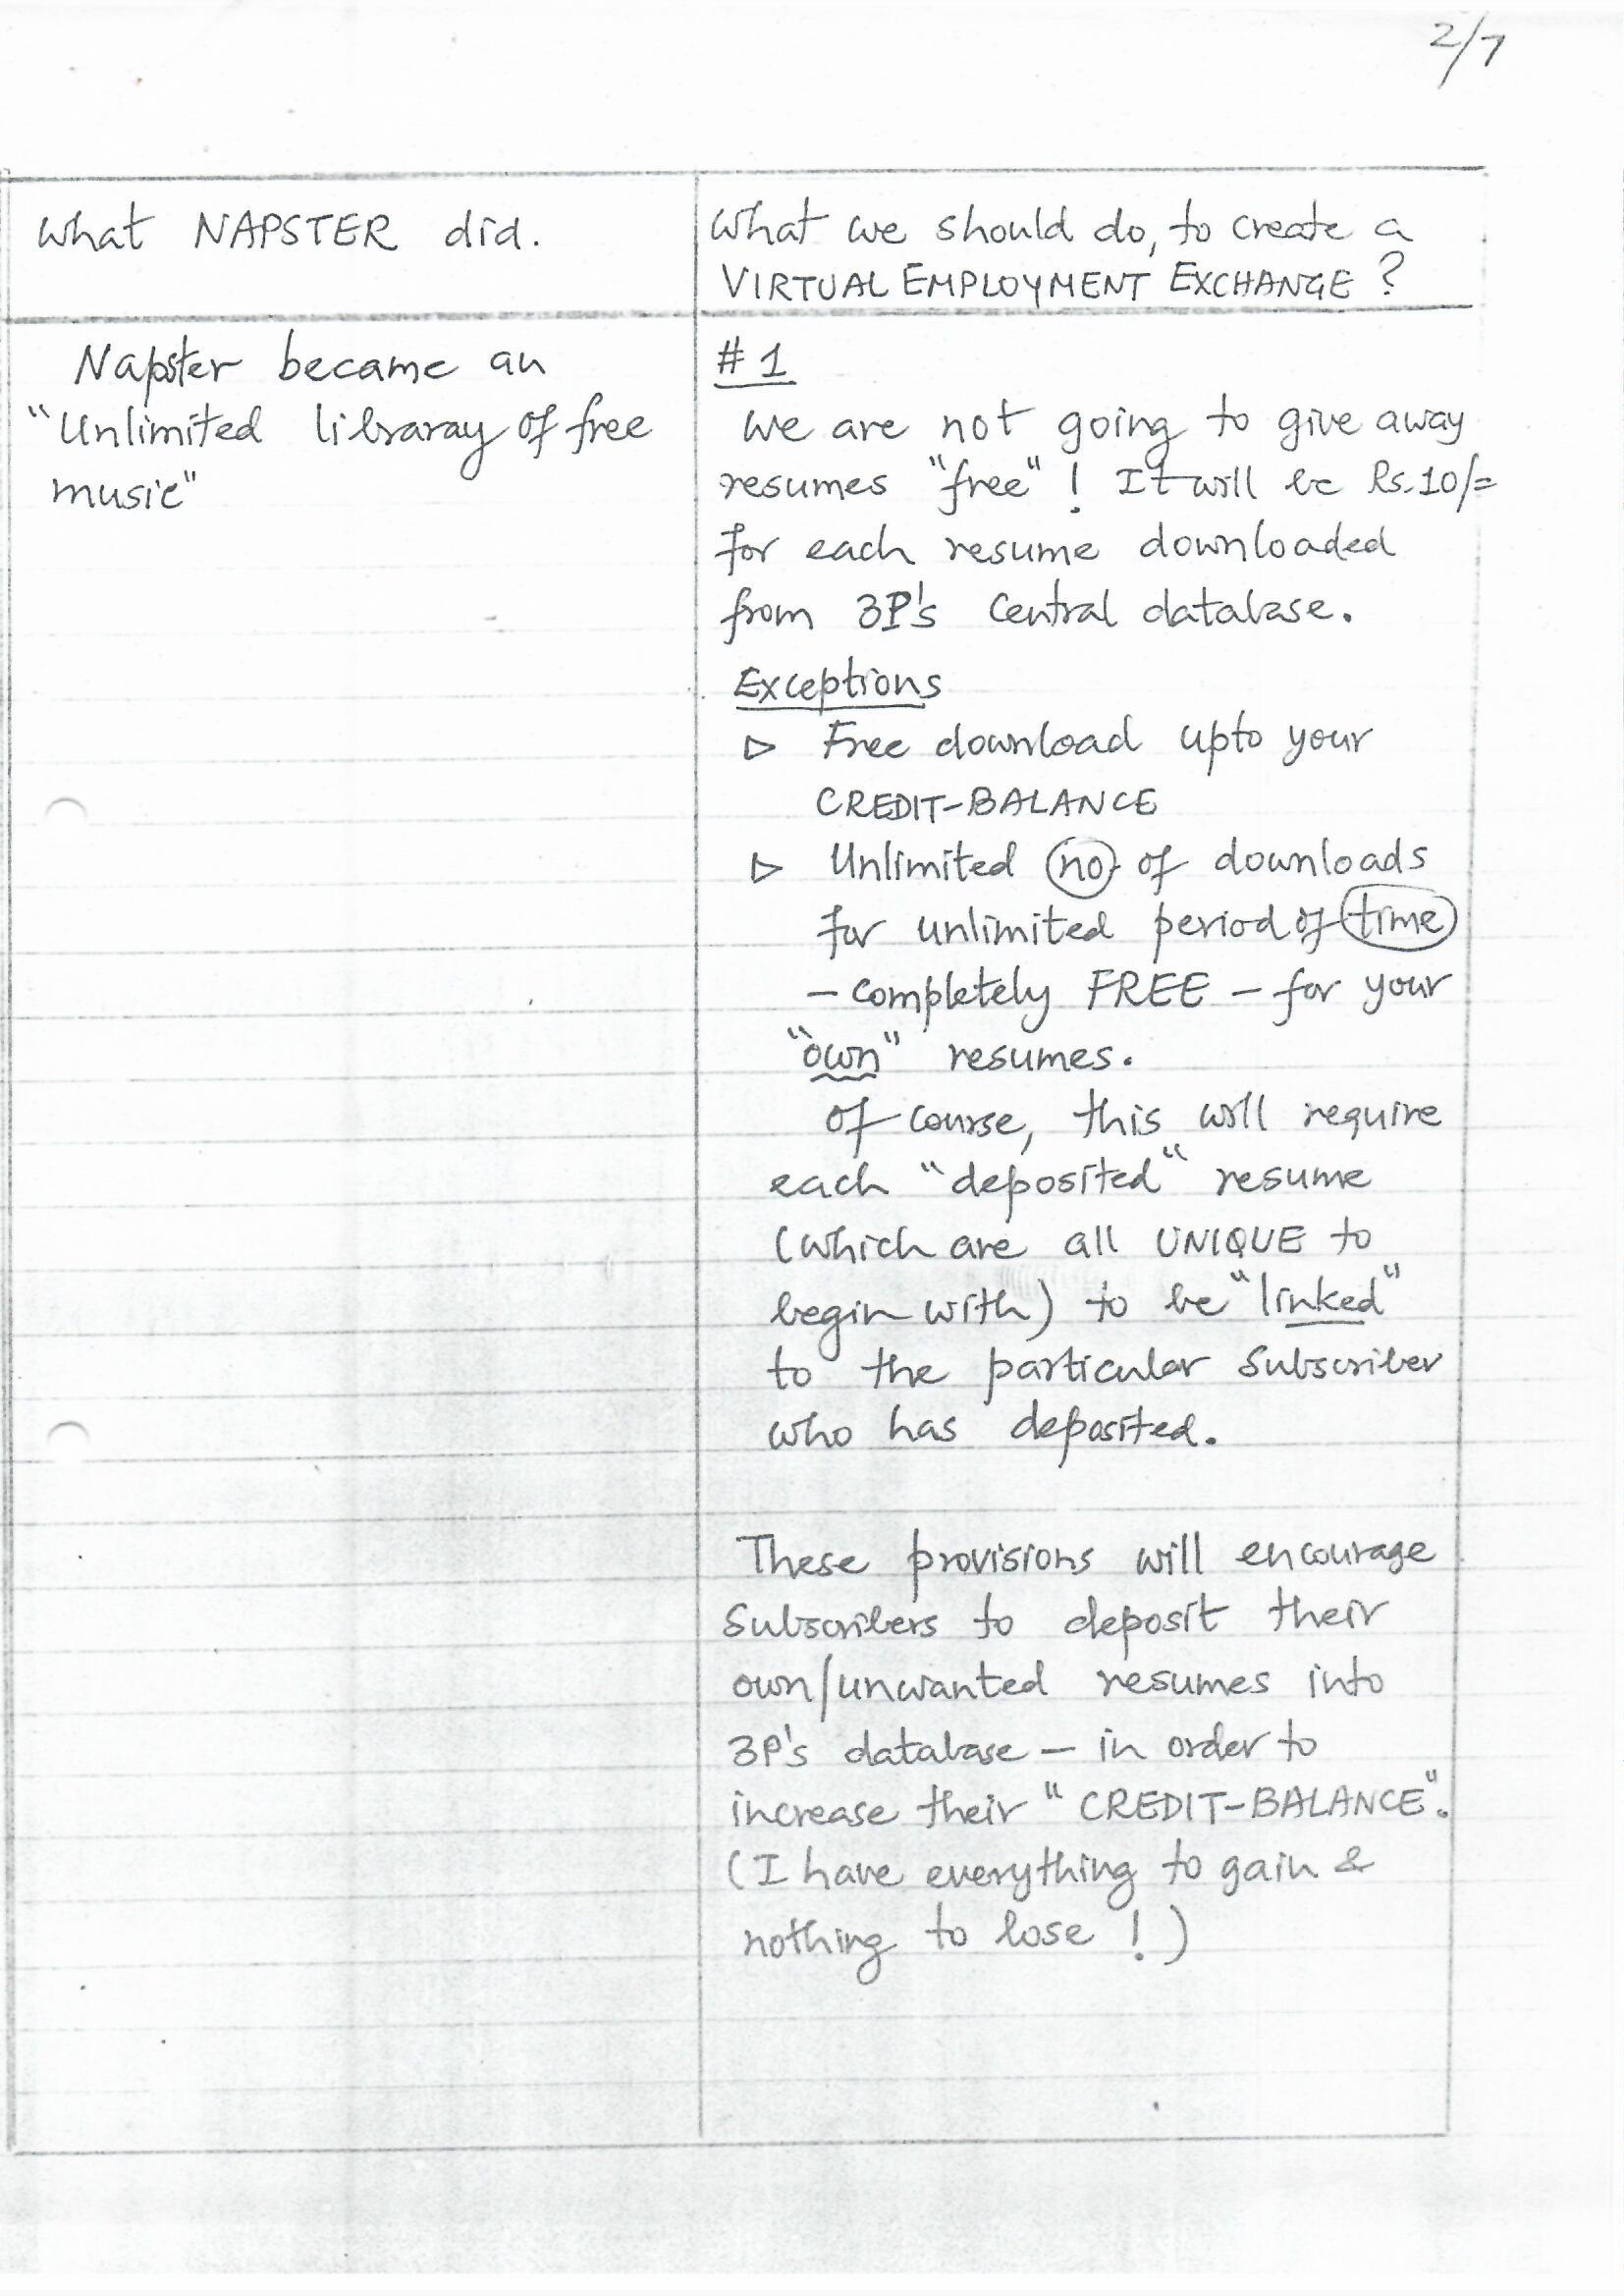 2/7
What NAPSTER did.
What we should do, to create a
VIRTUAL EMPLOYMENT EXCHANGE ?
Napster became an
"Unlimited libraray of free
music"
# 1
We are not going to give away
resumes "free" ! It will be Rs.10/=
for each resume downloaded
from 3P's Central database.
Exceptions
▷ Free download upto your
CREDIT-BALANCE
▷ Unlimited no. of downloads
for unlimited period of time
- completely FREE - for your
"own" resumes.
Of course, this will require
each "deposited" resume
(which are all UNIQUE to
begin with) to be "linked"
to the particular Subscriber
who has deposited.
These provisions will encourage
Subscribers to deposit their
own/unwanted resumes into
3P's database - in order to
increase their "CREDIT-BALANCE".
(I have everything to gain &
nothing to lose ! )